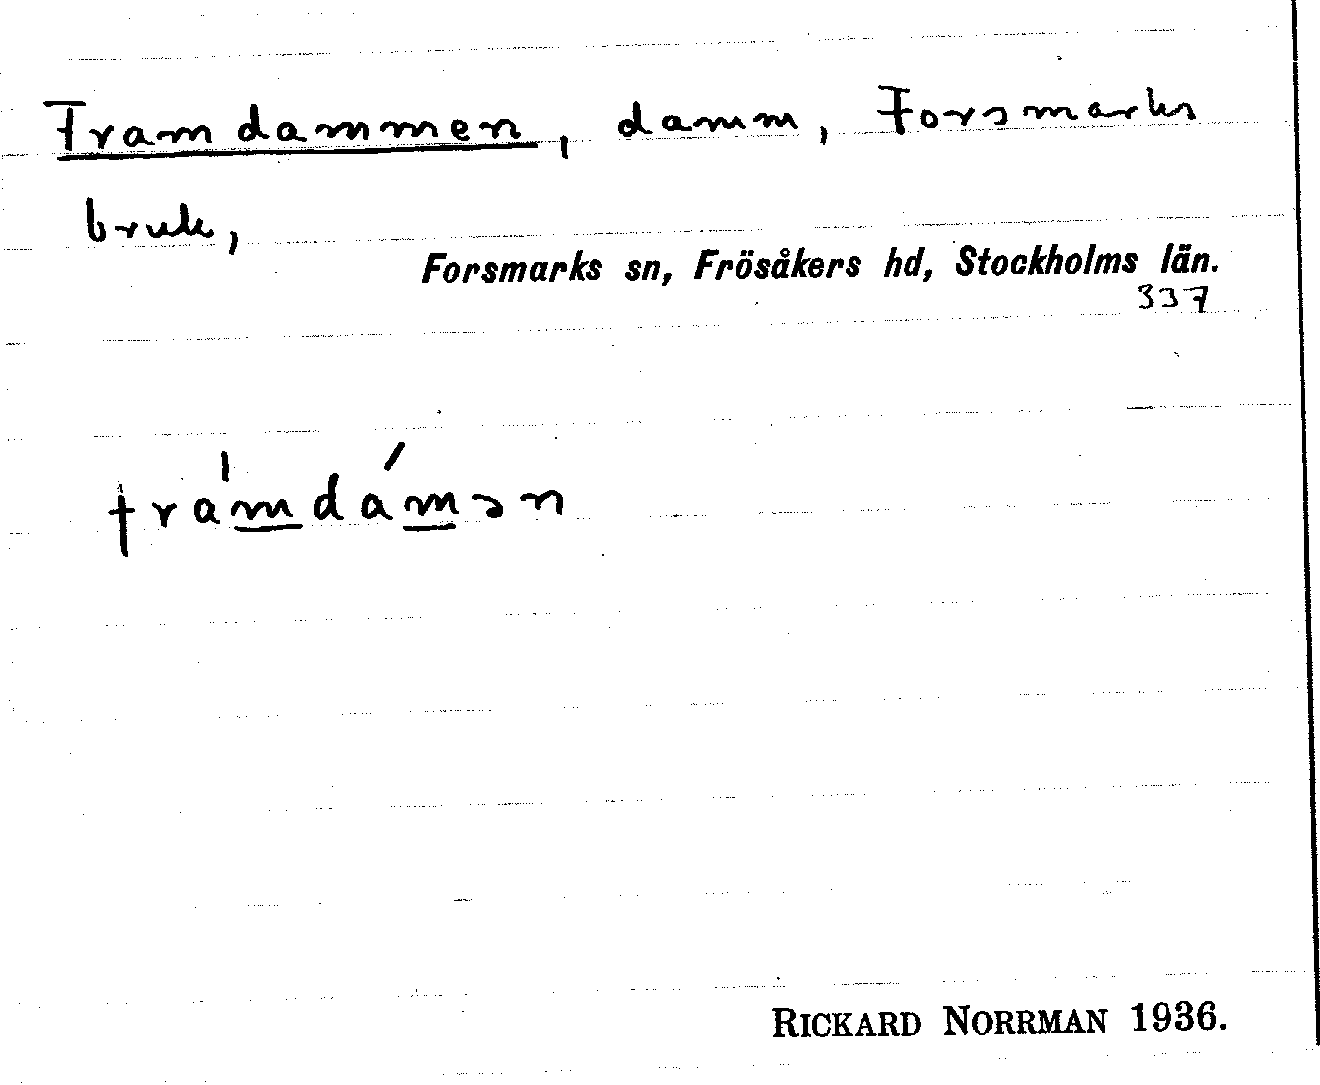 Framdammen, damm, Forsmarks
bruk,
Forsmarks sn, Frösåkers hd, Stockholms län.
337
fra̍m̲dám̲ən
RICKARD NORRMAN 1936.